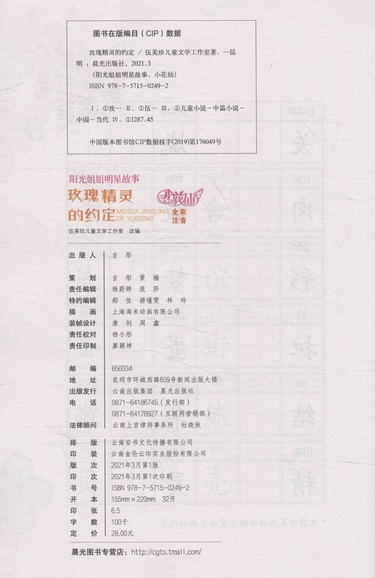 图书在版编目(CIP)数据
玫瑰精灵的约定 / 伍美珍儿童文学工作室著. —昆
明:晨光出版社, 2021.3
(阳光姐姐明星故事. 小花仙)
ISBN 978-7-5715-0249-2
Ⅰ. ①玫… Ⅱ. ①伍… Ⅲ. ①儿童小说-中篇小说-
中国-当代 Ⅳ. ①I287.45
中国版本图书馆CIP数据核字(2019)第176049号
阳光姐姐明星故事
玫瑰精灵
MEIGUI JINGLING
的约定
DE YUEDING
小花仙
全彩
注音
伍美珍儿童文学工作室 改编
出版人 吉彤
策划 吉彤 黄楠
责任编辑 杨蔚婷 庞莎
特约编辑 郝佳 游瑾雯 林玲
插画 上海淘米动画有限公司
装帧设计 唐剑 周鑫
责任校对 杨小彤
责任印制 廖颖坤
邮编 650034
地址 昆明市环城西路609号新闻出版大楼
出版发行 云南出版集团 晨光出版社
电话 0871-64186745(发行部)
0871-64178927(互联网营销部)
法律顾问 云南上首律师事务所 杜晓秋
排版 云南安书文化传播有限公司
印装 云南金伦云印实业股份有限公司
版次 2021年3月第1版
印次 2021年3月第1次印刷
书号 ISBN 978-7-5715-0249-2
开本 155mm×220mm 32开
印张 6.5
字数 100千
定价 28.00元
晨光图书专营店:http://cgts.tmall.com/